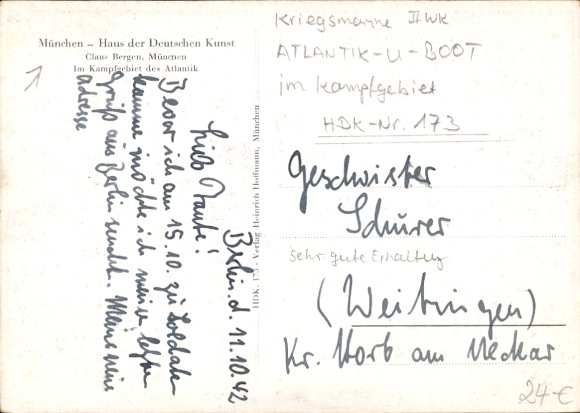 München – Haus der Deutschen Kunst
Claus Bergen, München
Im Kampfgebiet des Atlantik
Berlin. d. 11.10.42
Lieb Tante!
Bevor ich am 15.10. zu Soldaten
komme möchte ich meinen letzten
Gruß aus Berlin senden. Meine neue
Adresse
HDK. 173 – Verlag Heinrich Hoffmann, München
Kriegsmarine II WK
ATLANTIK-U-BOOT
im Kampfgebiet
HDK-Nr. 173
Geschwister
Schürer
sehr gute Erhaltung
(Weitingen)
Kr. Horb am Neckar
24-€